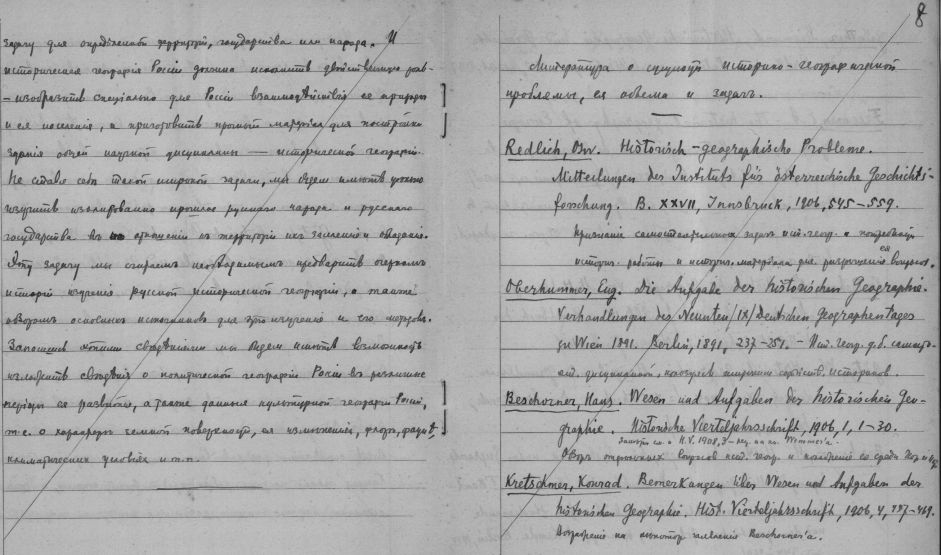 задачу для определенной территории, государства или народа. И
историческая география России должна исполнить двойственную роль
- изобразить специально для России взаимодействие ее природы
и ея населения, а приготовить прочный материал для постройки
здания общей научной дисциплины — исторической географии.
Не ставя себе такой широкой задачи, мы будем иметь целью
изучить изолированно прошлое русского народа и русского
государства въ отношении къ территории
Эту задачу мы считаем необходимым предварить очерком
истории изучения русской исторической географии, а также
обзором основных источников для этого изучения и его методов.
Запасшись этими сведениями мы будем иметь возможность
изложить сведения о политической географии России въ различные
периоды ея развития, а также данныя культурной географии России,
т.е. о характере земной поверхности, ея изменений, флоры, фауны,
климатических условиях и т.п.
8
Литература о сущности историко-географической
проблемы, ея объема и задачъ.
Redlich, Osw. Historisch-geographische Probleme.
Mitteilungen des Instituts für österreichische Geschichts-
forschung. B. XXVII, Innsbruck, 1906, 545-559.
Признание самостоятельности задач ист. геогр. и
истор. работы и историч. материала для разрешения ея вопросов.
Oberhummer, Eug. Die Aufgabe der historischen Geographie.
Verhandlungen des Neunten/IX/Deutschen Geographentages
zu Wien 1891. Berlin, 1891, 237-251. - Ист. геогр. д.б. самосто-
ят. дисциплиной, историков.
Beschorner, Hans. Wesen und Aufgaben der historischen Geo-
graphie. Historische Vierteljahrsschrift, 1906, 1, 1-30.
H.V. 1908, 3
Обзор вопросов ист. геогр. и положение ея среди
Kretschmer, Konrad. Bemerkungen über Wesen und Aufgaben der
historischen Geographie. Hist. Vierteljahrsschrift, 1906, 4,
Возражение на некотор. заявления Beschorner'a.